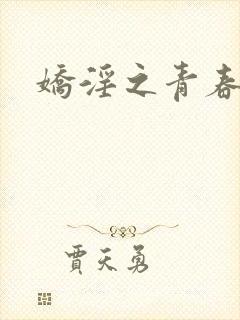 嬌淫之青春
賈天勇